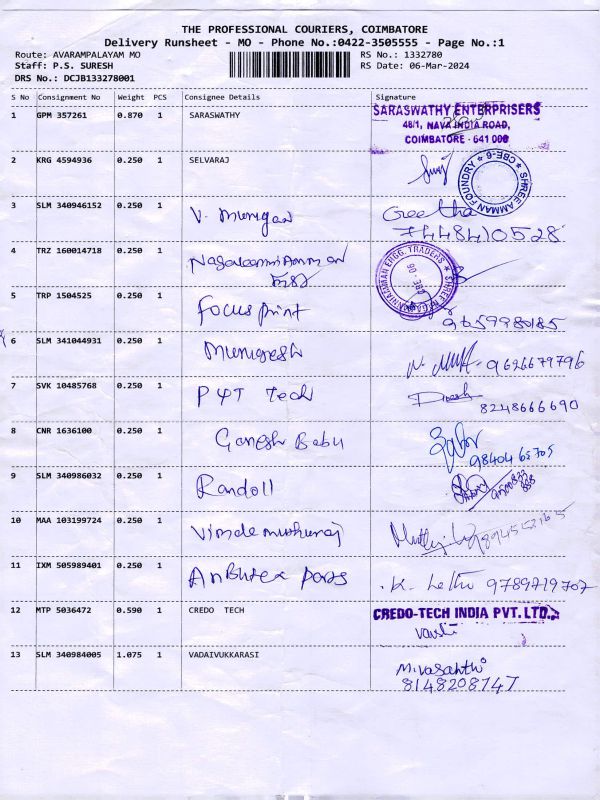 THE PROFESSIONAL COURIERS, COIMBATORE
Delivery Runsheet - MO - Phone No.:0422-3505555 - Page No.:1
Route: AVARAMPALAYAM MO
Staff: P.S. SURESH
DRS No.: DCJB133278001
RS No.: 1332780
RS Date: 06-Mar-2024
S No Consignment No Weight PCS Consignee Details Signature
1 GPM 357261 0.870 1 SARASWATHY
SARASWATHY ENTERPRISERS
48/1, NAVA INDIA ROAD,
COIMBATORE - 641 006
2 KRG 4594936 0.250 1 SELVARAJ
SHREE AMMAN FOUNDRY CBE-6
3 SLM 340946152 0.250 1 V. Murugan Geetha
7448410528
4 TRZ 160014718 0.250 1
ENGG. TRADERS SHREE
5 TRP 1504525 0.250 1 Focus print
9659980185
6 SLM 341044931 0.250 1 Murugesh 9626679796
7 SVK 10485768 0.250 1 P & T Tech Dinesh
8248666690
8 CNR 1636100 0.250 1 Ganesh Babu
98404 65705
9 SLM 340986032 0.250 1 Randoll
10 MAA 103199724 0.250 1
11 IXM 505989401 0.250 1 K. 9789719707
12 MTP 5036472 0.590 1 CREDO TECH
CREDO-TECH INDIA PVT. LTD.,
13 SLM 340984005 1.075 1 VADAIVUKKARASI
M. Vasanthi
8148208747